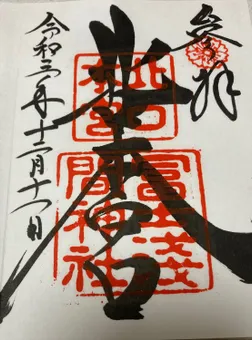 參拜
北口本宮
北口
本宮
冨士淺
間神社
令和三年十二月十一日